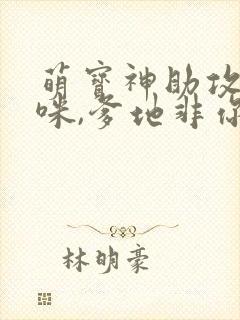 萌宝神助攻
咪,爹地非你
林明豪